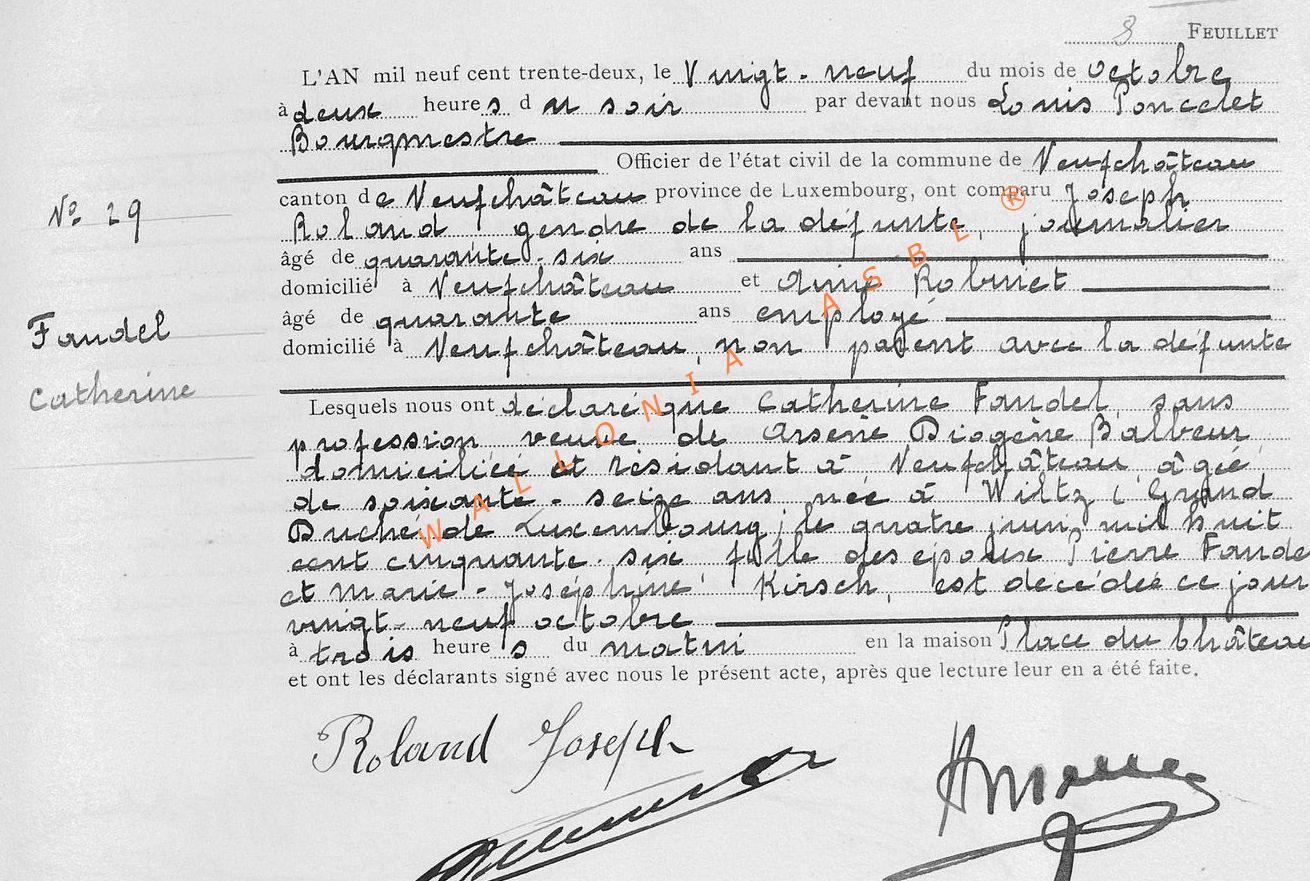 8 FEUILLET
L'AN mil neuf cent trente-deux, le Vingt-neuf du mois de octobre
à deux heures du soir par devant nous Louis Poncelet
Bourgmestre
Officier de l'état civil de la commune de Neufchâteau
canton de Neufchâteau province de Luxembourg, ont comparu Joseph
Nº 29
Roland gendre de la défunte, journalier
âgé de quarante-six ans
domicilié à Neufchâteau et Aimé Robinet
âgé de quarante ans employé
Faudel
domicilié à Neufchâteau, non parent avec la défunte
Catherine
Lesquels nous ont déclaré que Catherine Faudel, sans
profession veuve de Arsène Diogène Balbeur
domiciliée et résidant à Neufchâteau âgée
de soixante-seize ans née à Wiltz (Grand
Duché de Luxembourg) le quatre juin mil huit
cent cinquante-six fille des époux Pierre Faudel
et Marie-Joséphine Kirsch, est décédée ce jour
vingt-neuf octobre
à trois heures du matin en la maison Place du Château
et ont les déclarants signé avec nous le présent acte, après que lecture leur en a été faite.
Roland Joseph
WALLONIA ASBL ®